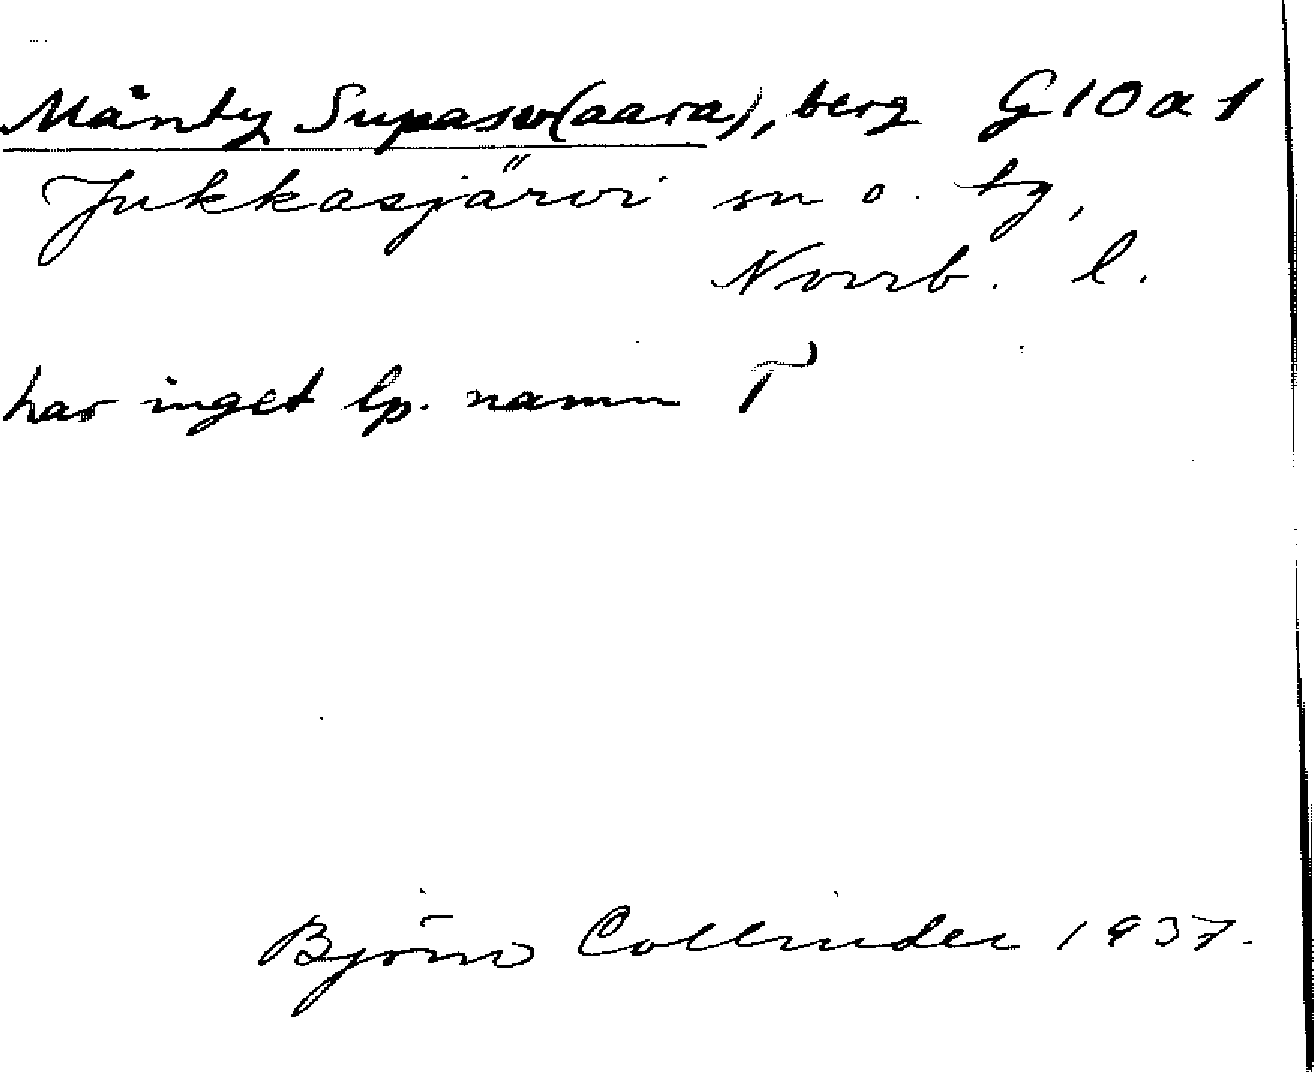 Mänty Supasv(aara), berg G10a1
Jukkasjärvi sn o. tg,
Norrb. l.
har inget lp. namn T
Björn Collinder 1937.